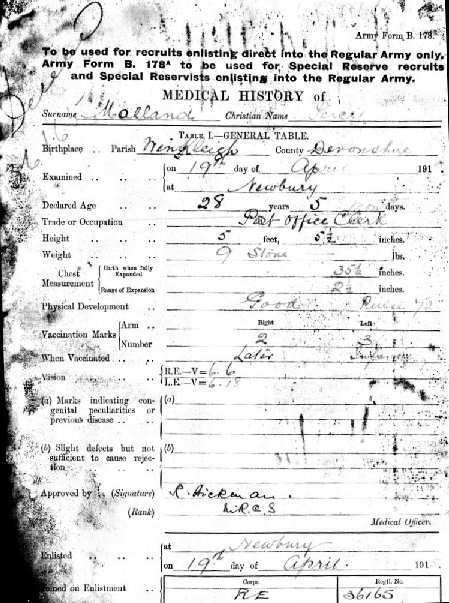 Army Form B. 178.
To be used for recruits enlisting direct into the Regular Army only.
Army Form B. 178A to be used for Special Reserve recruits
and Special Reservists enlisting into the Regular Army.
MEDICAL HISTORY of
Surname Molland Christian Name Percy
TABLE I.—GENERAL TABLE.
Birthplace .. Parish Winkleigh County Devonshire
Examined .. .. .. on 19th day of April 191
at Newbury
Declared Age .. .. 28 years 5 days.
Trade or Occupation .. Post Office Clerk
Height .. .. .. 5 feet, 5½ inches.
Weight .. .. 9 Stone lbs.
Chest Measurement Girth when fully Expanded 35½ inches.
Range of Expansion 2½ inches.
Physical Development .. Good
Vaccination Marks Arm .. Right Left
Number 2 3
When Vaccinated .. .. Later Infancy
Vision .. .. R.E.—V= 6.6
L.E.—V= 6.18
(a) Marks indicating con-
genital peculiarities or
previous disease .. (a)
(b) Slight defects but not
sufficient to cause rejec-
tion (b)
Approved by (Signature) R. Hickman.
(Rank) M.R.C.S
Medical Officer.
Enlisted .. .. .. at Newbury
on 19th day of April 191
Joined on Enlistment .. Corps Regtl. No.
RE 36165